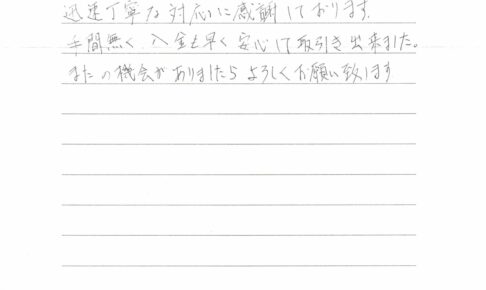 迅速丁寧な対応に感謝しております。
手間無く、入金も早く安心して取引き出来ました。
またの機会がありましたらよろしくお願い致します。